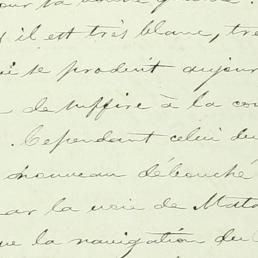 il est très blanc, tre
se produit aujour
de suffire à la con
. Cependant celui du
nouveau débouché
par la voie de Mata
que la navigation du